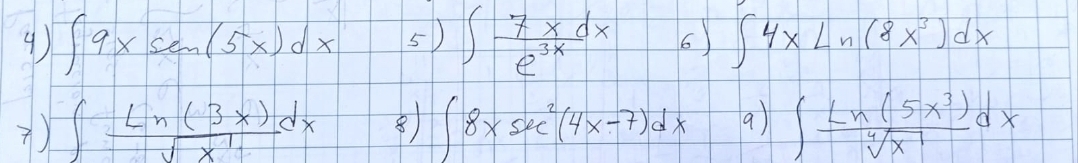 4) ∫ 9x sen(5x)dx 5) ∫ 7x dx / e^{3x} 6) ∫ 4x Ln(8x³)dx
7) ∫ Ln(3x) / √x dx 8) ∫ 8x sec²(4x-7)dx 9) ∫ Ln(5x³) / ∜x dx